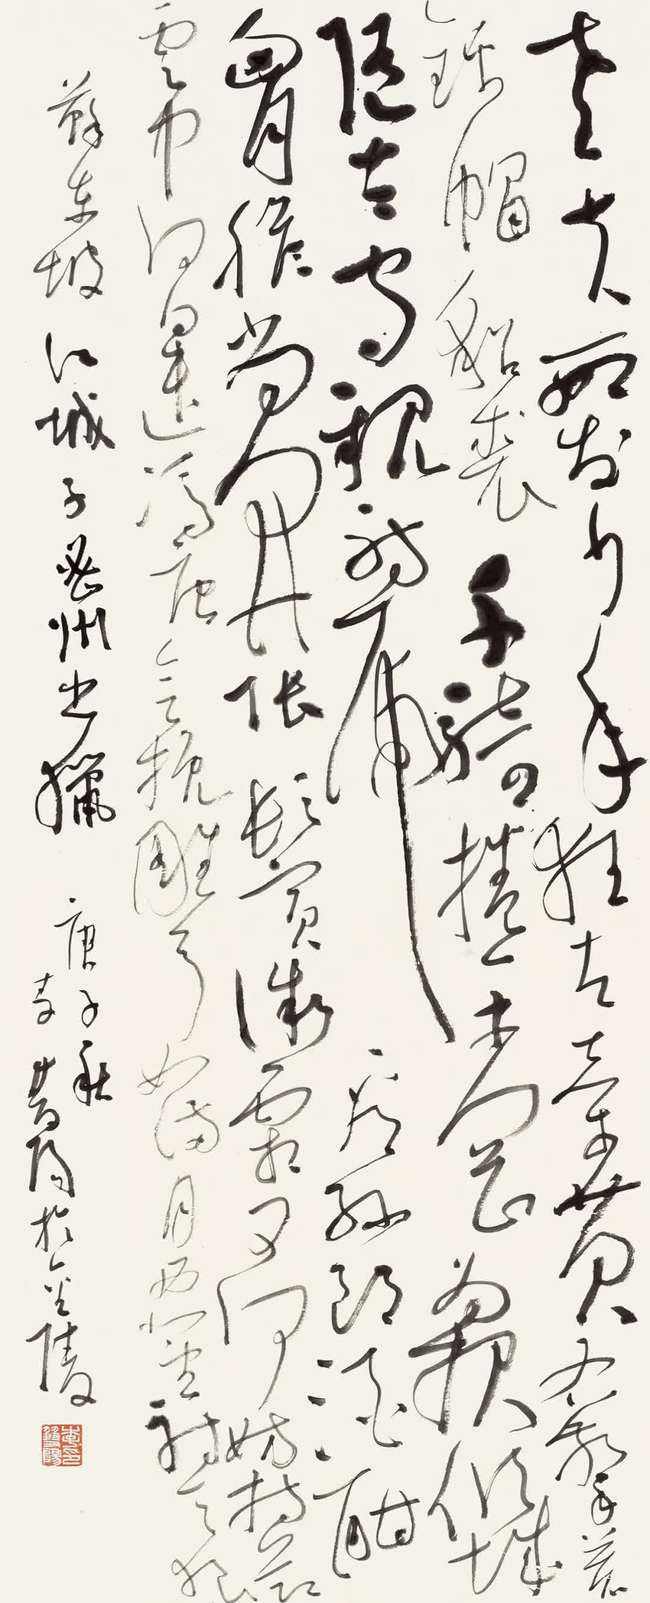 老夫聊發少年狂左牽黃右擎蒼
錦帽貂裘千騎捲平岡為報傾城
隨太守親射虎看孫郎酒酣
胸膽尚開張鬢微霜又何妨持節
雲中何日遣馮唐會挽雕弓如滿月西北望射天狼
蘇東坡江城子密州出獵 庚子秋 於金陵